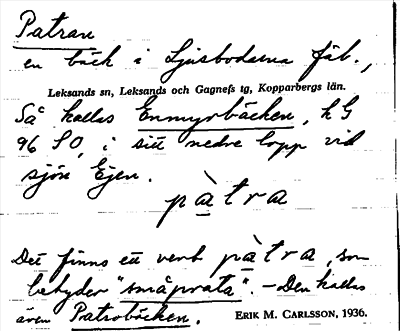 Patran
en bäck i Ljusbodarna fäb.,
Leksands sn, Leksands och Gagnefs tg, Kopparbergs län.
Så kallas Ennyrbäcken, hG
96 SO, i sitt nedre lopp vid
sjön Ejen.
pàtra
Det finns ett verb pàtra, som
betyder "småprata". – Den kallas
även Patrobäcken.
ERIK M. CARLSSON, 1936.